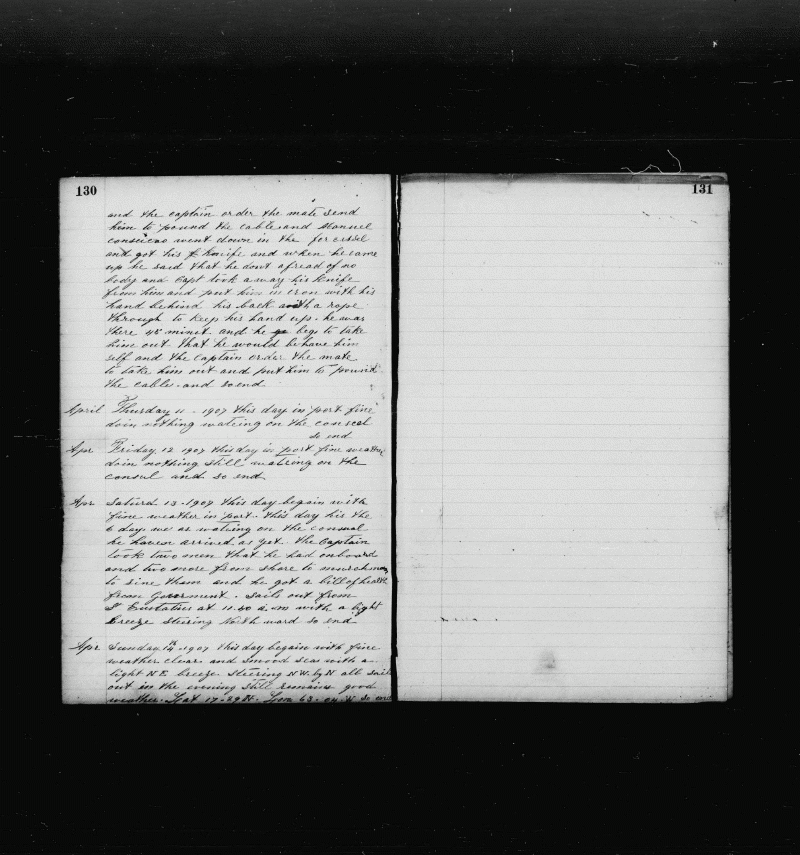 130
and the captain order the mate send
him to pound the cable and Manuel
went down in the for cstsel
and got his knife and when he came
up he said that he dont afread of no
body and Capt took away his knife
from him and put him in iron with his
hand behind his back with a rope
through to keep his hand up. he was
there 45 minet. and he begs to take
him out that he would behave him
self and the Captain order the mate
to take him out and put him to pound
the cables. and so end
April Thursday 11 - 1907 this day in port fine
doin nothing wateing on the
so end
Apr Friday 12 1907 this day in port fine weather
doin nothing still wateing on the
consul and so end
Apr Saturd 13 - 1907 this day begain with
fine weather in port. this day his the
6 day we ar wateing on the consual
he haven arrived as yet. the Captain
took two men that he had onboard
and two more from shore to
to sine them and he got a bill of health
from Goverment. Sails out from
St Eustatius at 11.40 a.m with a light
breeze steering North ward so end
Apr Sunday 14th 1907 this day begain with fine
weather clear and smood seas with a
light N.E. breeze. Steering N.W. by N all sails
out in the evening still remains good
weather. Lat 17-29 N. Lon 63-04 W so end
131